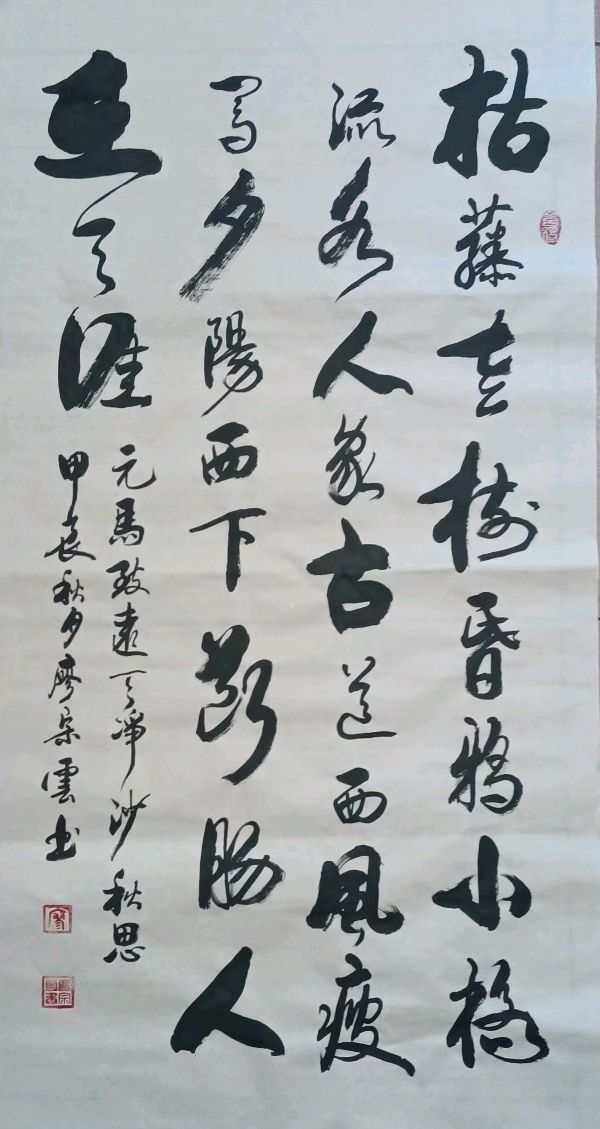 枯藤老樹昏鴉小橋
流水人家古道西風瘦
馬夕陽西下斷腸人
在天涯
元馬致遠天淨沙秋思
甲辰秋月廖宗雲書
廖